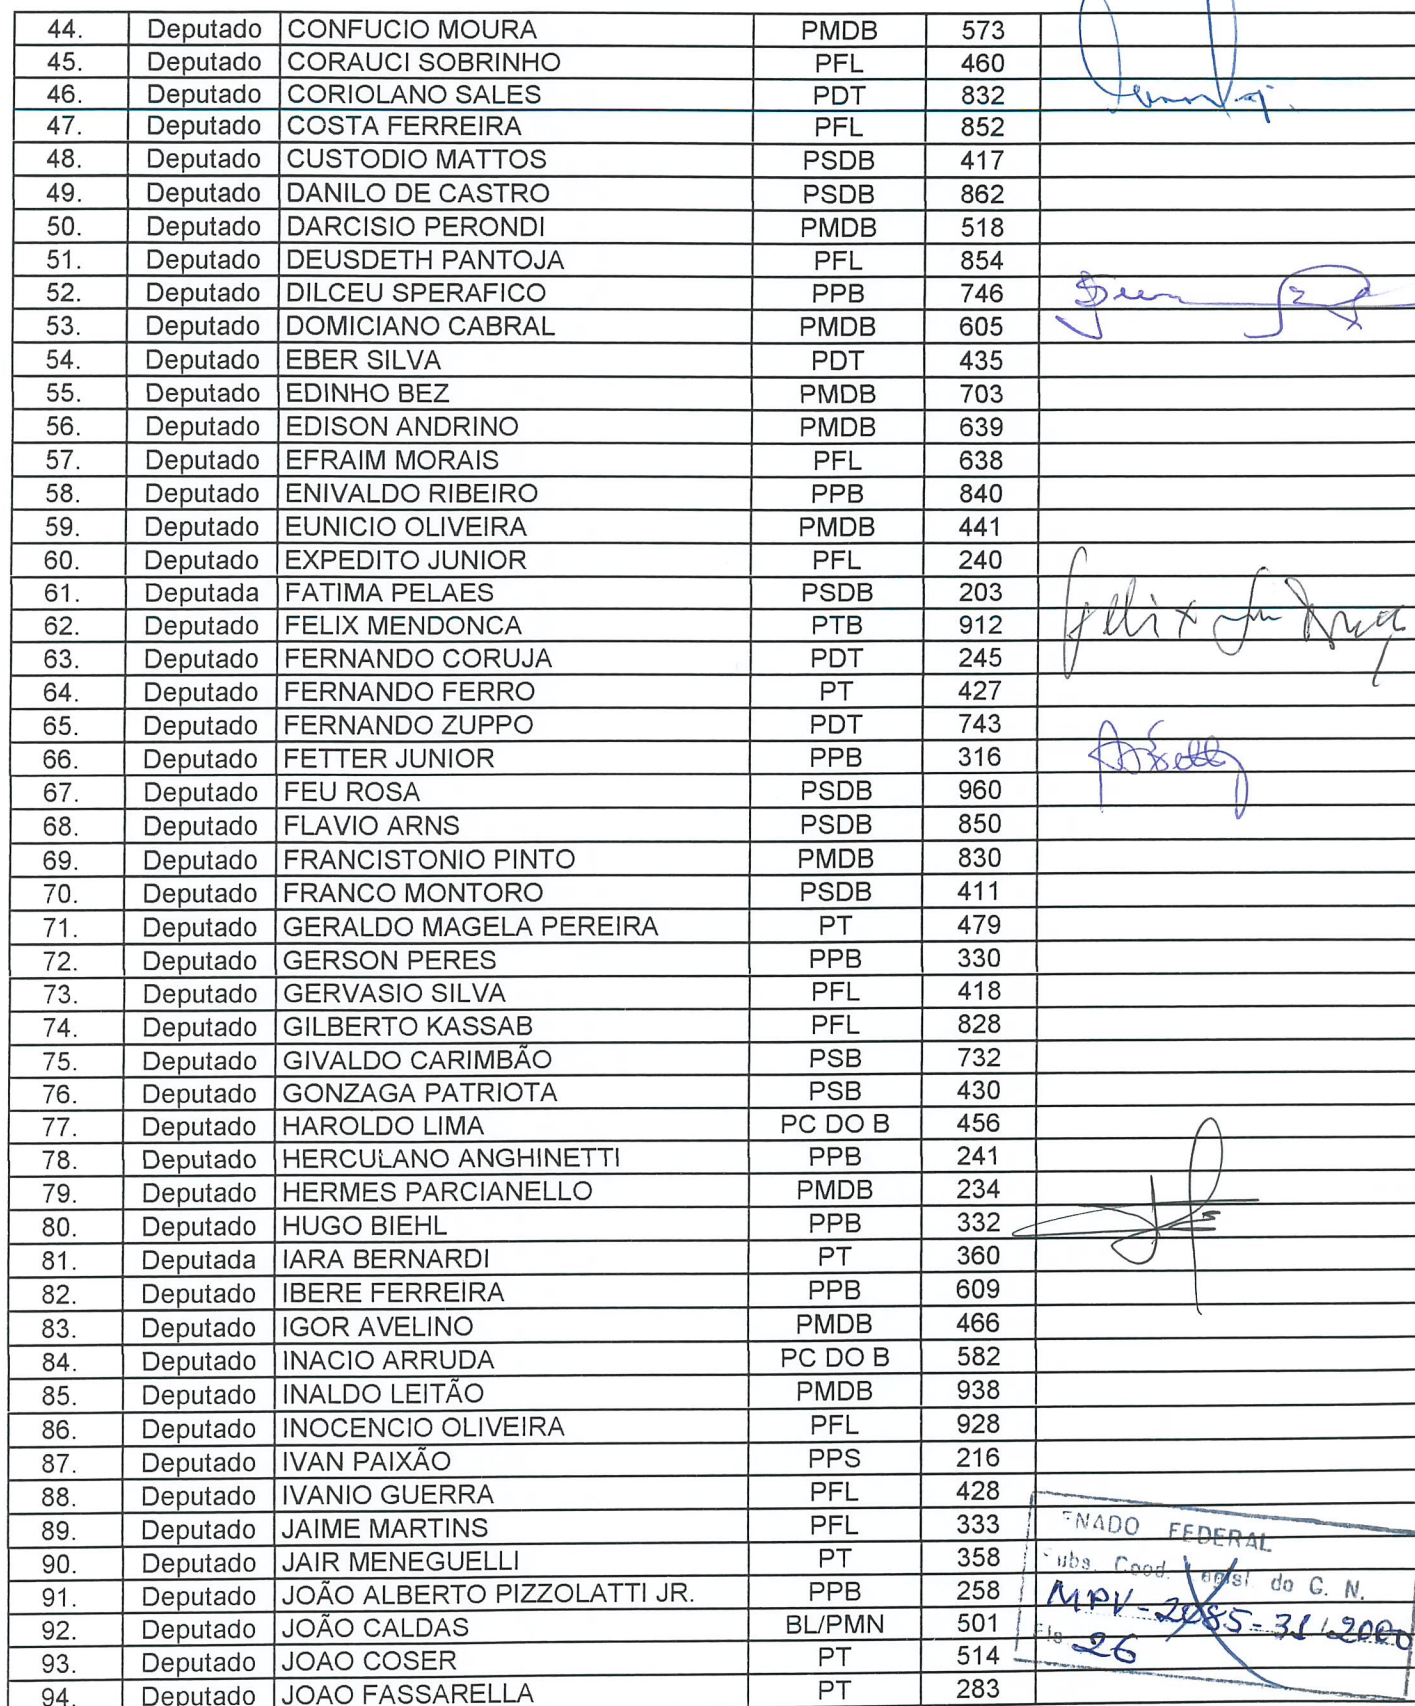 44. Deputado CONFUCIO MOURA PMDB 573
45. Deputado CORAUCI SOBRINHO PFL 460
46. Deputado CORIOLANO SALES PDT 832
47. Deputado COSTA FERREIRA PFL 852
48. Deputado CUSTODIO MATTOS PSDB 417
49. Deputado DANILO DE CASTRO PSDB 862
50. Deputado DARCISIO PERONDI PMDB 518
51. Deputado DEUSDETH PANTOJA PFL 854
52. Deputado DILCEU SPERAFICO PPB 746
53. Deputado DOMICIANO CABRAL PMDB 605
54. Deputado EBER SILVA PDT 435
55. Deputado EDINHO BEZ PMDB 703
56. Deputado EDISON ANDRINO PMDB 639
57. Deputado EFRAIM MORAIS PFL 638
58. Deputado ENIVALDO RIBEIRO PPB 840
59. Deputado EUNICIO OLIVEIRA PMDB 441
60. Deputado EXPEDITO JUNIOR PFL 240
61. Deputada FATIMA PELAES PSDB 203
62. Deputado FELIX MENDONCA PTB 912 Felix
63. Deputado FERNANDO CORUJA PDT 245
64. Deputado FERNANDO FERRO PT 427
65. Deputado FERNANDO ZUPPO PDT 743
66. Deputado FETTER JUNIOR PPB 316
67. Deputado FEU ROSA PSDB 960
68. Deputado FLAVIO ARNS PSDB 850
69. Deputado FRANCISTONIO PINTO PMDB 830
70. Deputado FRANCO MONTORO PSDB 411
71. Deputado GERALDO MAGELA PEREIRA PT 479
72. Deputado GERSON PERES PPB 330
73. Deputado GERVASIO SILVA PFL 418
74. Deputado GILBERTO KASSAB PFL 828
75. Deputado GIVALDO CARIMBÃO PSB 732
76. Deputado GONZAGA PATRIOTA PSB 430
77. Deputado HAROLDO LIMA PC DO B 456
78. Deputado HERCULANO ANGHINETTI PPB 241
79. Deputado HERMES PARCIANELLO PMDB 234
80. Deputado HUGO BIEHL PPB 332
81. Deputada IARA BERNARDI PT 360
82. Deputado IBERE FERREIRA PPB 609
83. Deputado IGOR AVELINO PMDB 466
84. Deputado INACIO ARRUDA PC DO B 582
85. Deputado INALDO LEITÃO PMDB 938
86. Deputado INOCENCIO OLIVEIRA PFL 928
87. Deputado IVAN PAIXÃO PPS 216
88. Deputado IVANIO GUERRA PFL 428
89. Deputado JAIME MARTINS PFL 333
90. Deputado JAIR MENEGUELLI PT 358
91. Deputado JOÃO ALBERTO PIZZOLATTI JR. PPB 258
92. Deputado JOÃO CALDAS BL/PMN 501
93. Deputado JOAO COSER PT 514
94. Deputado JOAO FASSARELLA PT 283
ENADO FEDERAL
ubs. Cood. Legisl. do C. N.
MPV-2085-31/2000
Fls. 26